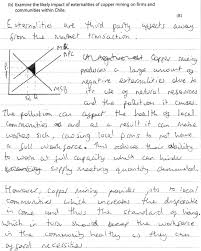 (b) Examine the likely impact of externalities of copper mining on firms and
communities within Chile.
(8)
Externalities are third party effects away
from the market transaction.
MSC
MPC
Copper mining
produces a large amount of
negative externalities due to
its use of natural resources
and the pollution it causes.
MSB
The pollution can affect the health of local
communities and as a result it can make
workers sick, causing local firms to not have
a full workforce. This reduces their ability
to work at full capacity which can hinder
supply meeting quantity demanded.
However, copper mining provides jobs to local
communities which increases the disposable
income and thus the standard of living,
which in turn should keep the workforce
in the community healthy as they can
afford necessities